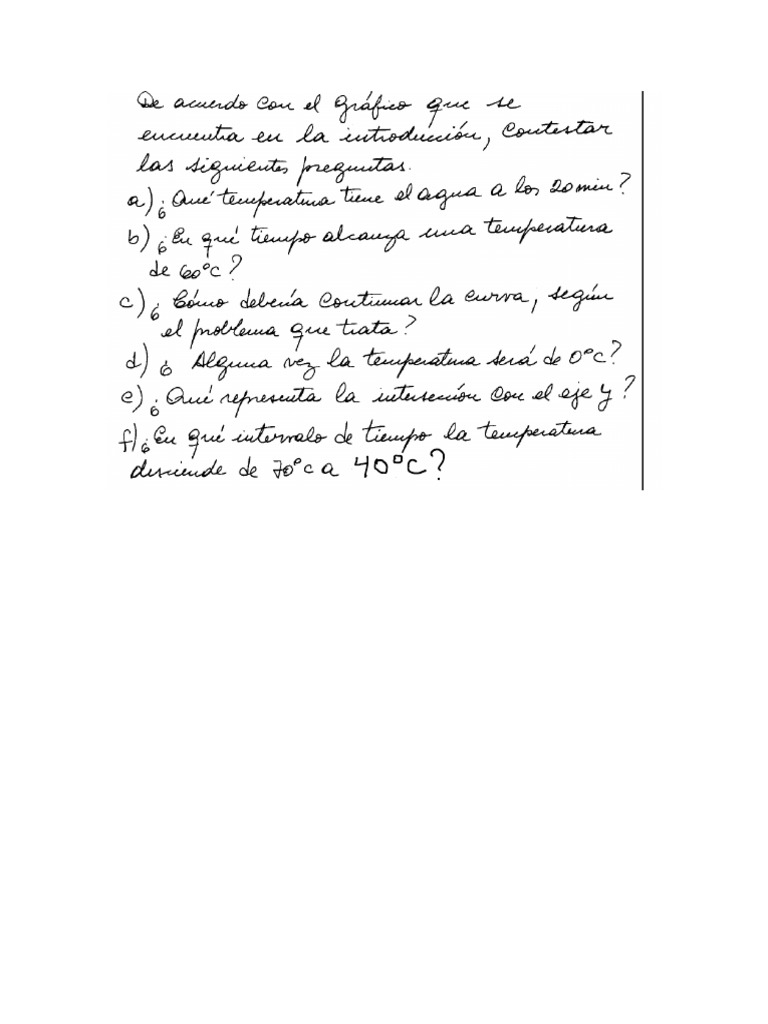 De acuerdo con el gráfico que se
encuentra en la introducción, contestar
las siguientes preguntas.
a) ¿Qué temperatura tiene el agua a los 20 min?
b) ¿En qué tiempo alcanza una temperatura
de 60°C?
c) ¿Cómo debería continuar la curva, según
el problema que trata?
d) ¿Alguna vez la temperatura será de 0°C?
e) ¿Qué representa la intersección con el eje y?
f) ¿En qué intervalo de tiempo la temperatura
desciende de 70°C a 40°C?